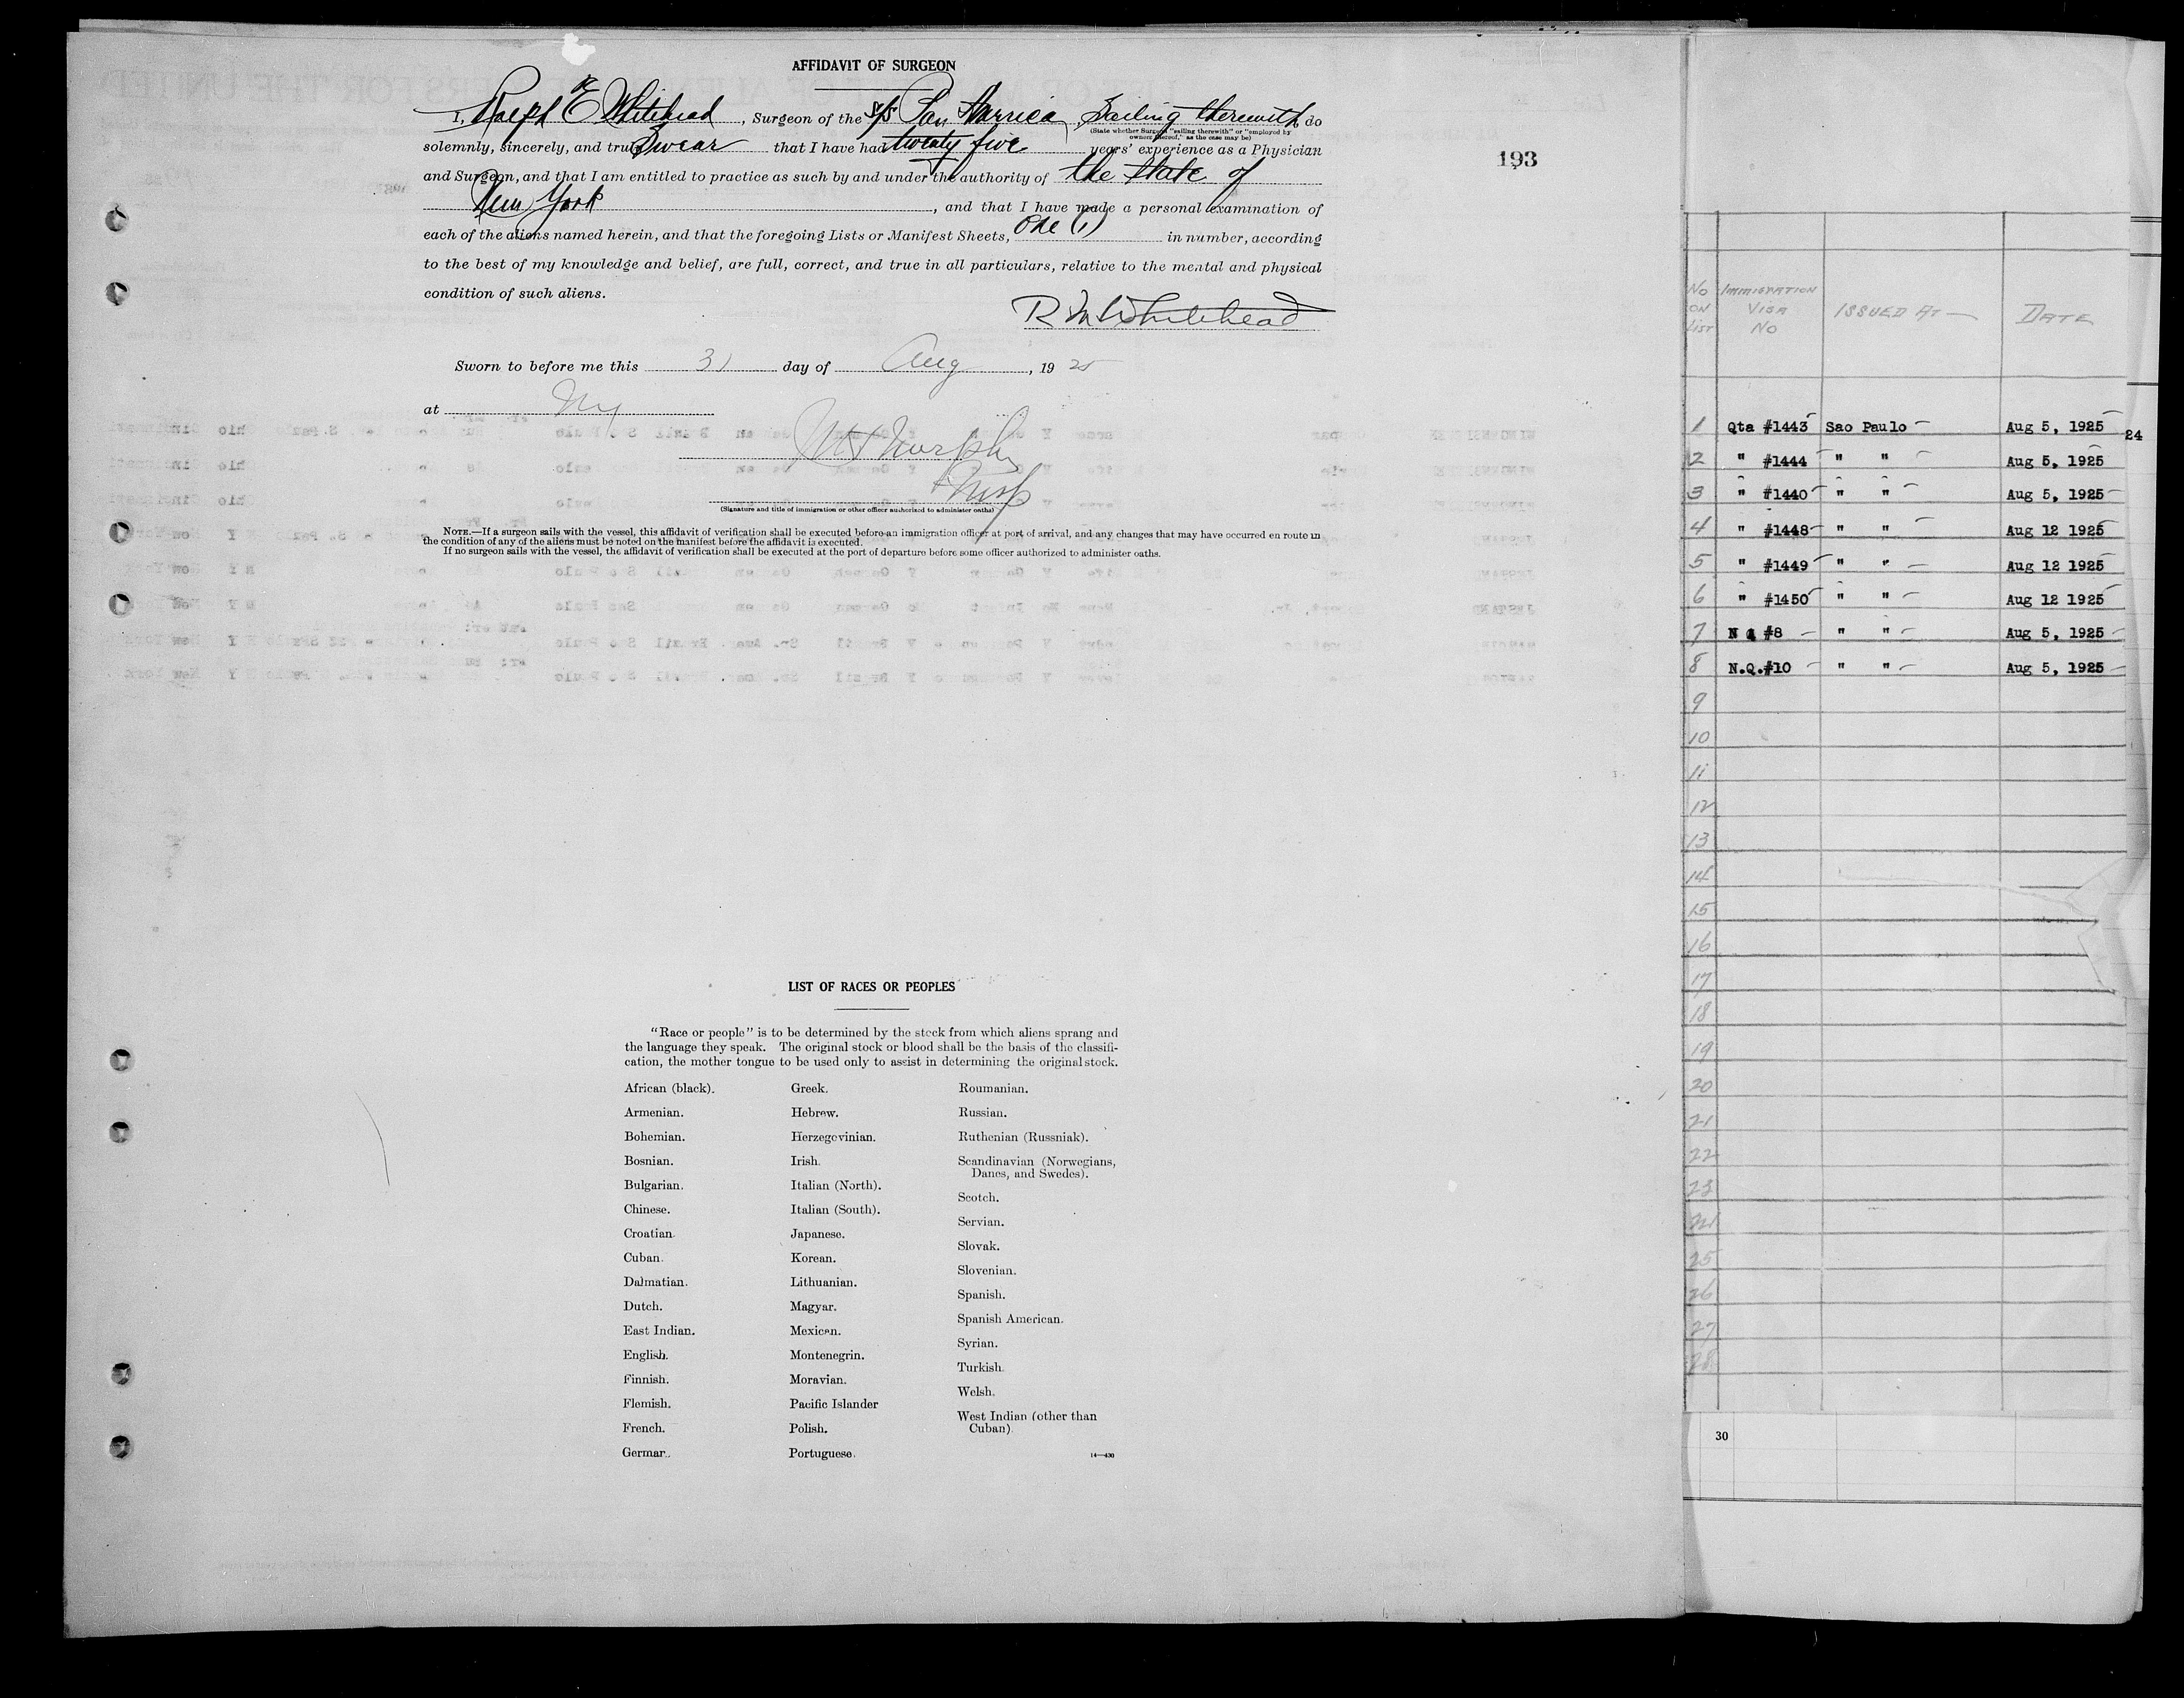 AFFIDAVIT OF SURGEON
I, Ralph E Whitehead, Surgeon of the S/S Pan America, Sailing therewith do
(State whether Surgeon "sailing therewith" or "employed by
owners thereof," as the case may be)
solemnly, sincerely, and truly Swear that I have had twenty five years' experience as a Physician
and Surgeon, and that I am entitled to practice as such by and under the authority of the State of
New York, and that I have made a personal examination of
each of the aliens named herein, and that the foregoing Lists or Manifest Sheets, One (1) in number, according
to the best of my knowledge and belief, are full, correct, and true in all particulars, relative to the mental and physical
condition of such aliens.
R M Whitehead
Sworn to before me this 31 day of Aug, 1925
at NY
Murphy
Insp
(Signature and title of immigration or other officer authorized to administer oaths)
NOTE.—If a surgeon sails with the vessel, this affidavit of verification shall be executed before an immigration officer at port of arrival, and any changes that may have occurred en route in
the condition of any of the aliens must be noted on the manifest before the affidavit is executed.
If no surgeon sails with the vessel, the affidavit of verification shall be executed at the port of departure before some officer authorized to administer oaths.
LIST OF RACES OR PEOPLES
"Race or people" is to be determined by the stock from which aliens sprang and
the language they speak. The original stock or blood shall be the basis of the classifi-
cation, the mother tongue to be used only to assist in determining the original stock.
African (black).
Armenian.
Bohemian.
Bosnian.
Bulgarian.
Chinese.
Croatian.
Cuban.
Dalmatian.
Dutch.
East Indian.
English.
Finnish.
Flemish.
French.
German.
Greek.
Hebrew.
Herzegovinian.
Irish.
Italian (North).
Italian (South).
Japanese.
Korean.
Lithuanian.
Magyar.
Mexican.
Montenegrin.
Moravian.
Pacific Islander
Polish.
Portuguese.
Roumanian.
Russian.
Ruthenian (Russniak).
Scandinavian (Norwegians,
Danes, and Swedes).
Scotch.
Servian.
Slovak.
Slovenian.
Spanish.
Spanish American.
Syrian.
Turkish.
Welsh.
West Indian (other than
Cuban)
14—430
193
No ON LIST IMMIGRATION VISA NO ISSUED AT — DATE
1 Qta #1443 Sao Paulo Aug 5, 1925
24
2 " #1444 " " Aug 5, 1925
3 " #1440 " " Aug 5, 1925
4 " #1448 " " Aug 12 1925
5 " #1449 " " Aug 12 1925
6 " #1450 " " Aug 12 1925
7 N Q #8 " " Aug 5, 1925
8 N.Q.#10 " " Aug 5, 1925
9
10
11
12
13
14
15
16
17
18
19
20
21
22
23
24
25
26
27
28
30